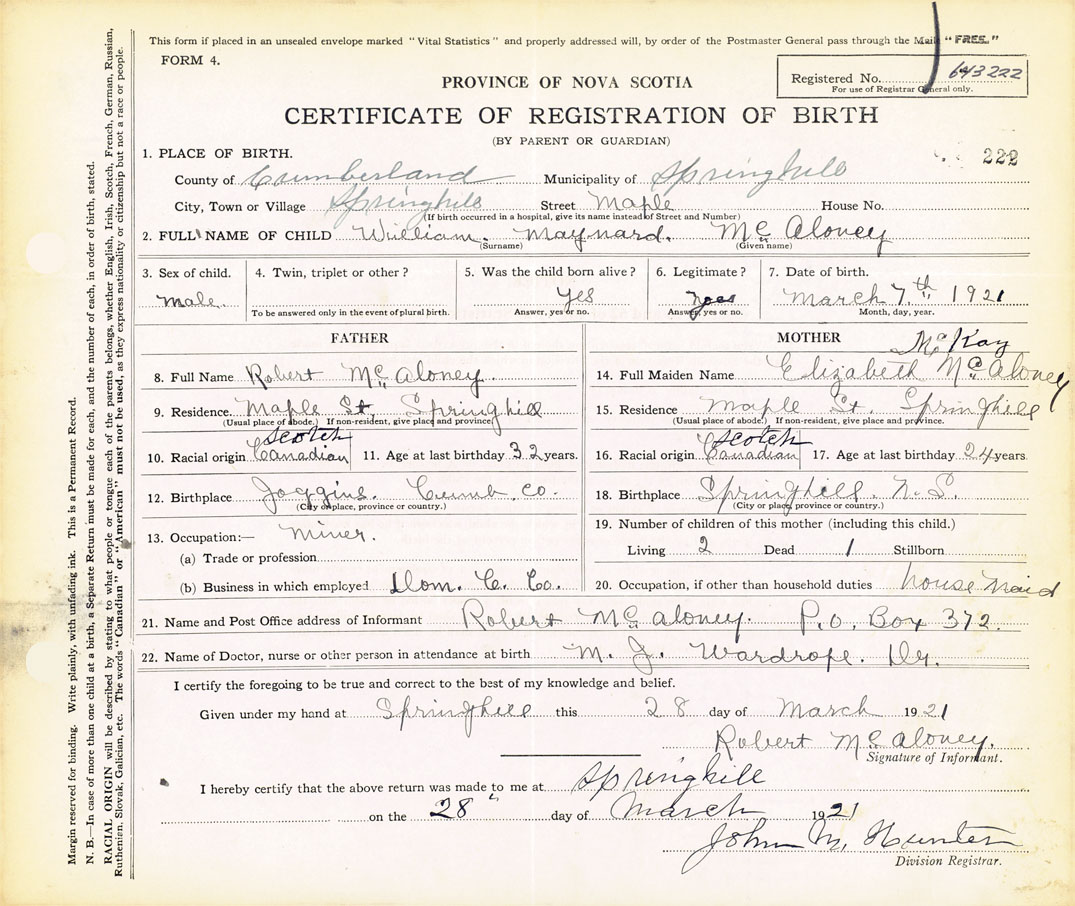 This form if placed in an unsealed envelope marked "Vital Statistics" and properly addressed will, by order of the Postmaster General pass through the Mail "FREE."
FORM 4.
Registered No. 643222
For use of Registrar General only.
PROVINCE OF NOVA SCOTIA
CERTIFICATE OF REGISTRATION OF BIRTH
(BY PARENT OR GUARDIAN)
222
1. PLACE OF BIRTH.
County of Cumberland Municipality of Springhill
City, Town or Village Springhill Street Maple House No.
(If birth occurred in a hospital, give its name instead of Street and Number)
2. FULL NAME OF CHILD William. Maynard. Mc Aloney
(Surname) (Given name)
3. Sex of child. 4. Twin, triplet or other? 5. Was the child born alive? 6. Legitimate? 7. Date of birth.
Male. Yes yes March 7th 1921
To be answered only in the event of plural birth. Answer, yes or no. Answer, yes or no. Month, day, year.
FATHER MOTHER
McKay
8. Full Name Robert Mc Aloney. 14. Full Maiden Name Elizabeth Mc Aloney
9. Residence Maple St. Springhill 15. Residence Maple St. Springhill
(Usual place of abode.) If non-resident, give place and province (Usual place of abode.) If non-resident, give place and province.
Scotch Scotch
10. Racial origin Canadian 11. Age at last birthday 32 years. 16. Racial origin Canadian 17. Age at last birthday 24 years.
12. Birthplace Joggins. Cumb. Co. 18. Birthplace Springhill. N.S.
(City or place, province or country.) (City or place, province or country.)
13. Occupation:— Miner. 19. Number of children of this mother (including this child.)
(a) Trade or profession Living 2 Dead 1 Stillborn
(b) Business in which employed Dom. C. Co. 20. Occupation, if other than household duties house maid
21. Name and Post Office address of Informant Robert Mc Aloney. P.O. Box 372.
22. Name of Doctor, nurse or other person in attendance at birth M. J. Wardrope. Dr.
I certify the foregoing to be true and correct to the best of my knowledge and belief.
Given under my hand at Springhill this 28 day of March 1921
Robert Mc Aloney.
Signature of Informant.
I hereby certify that the above return was made to me at Springhill
on the 28 day of March 1921
John M. Hunter
Division Registrar.
Margin reserved for binding. Write plainly, with unfading ink. This is a Permanent Record.
N. B.—In case of more than one child at a birth, a Separate Return must be made for each, and the number of each, in order of birth, stated.
RACIAL ORIGIN will be described by stating to what people or tongue each of the parents belongs, whether English, Irish, Scotch, French, German, Russian,
Ruthenien, Slovak, Galician, etc. The words "Canadian" or "American" must not be used, as they express nationality or citizenship but not a race or people.